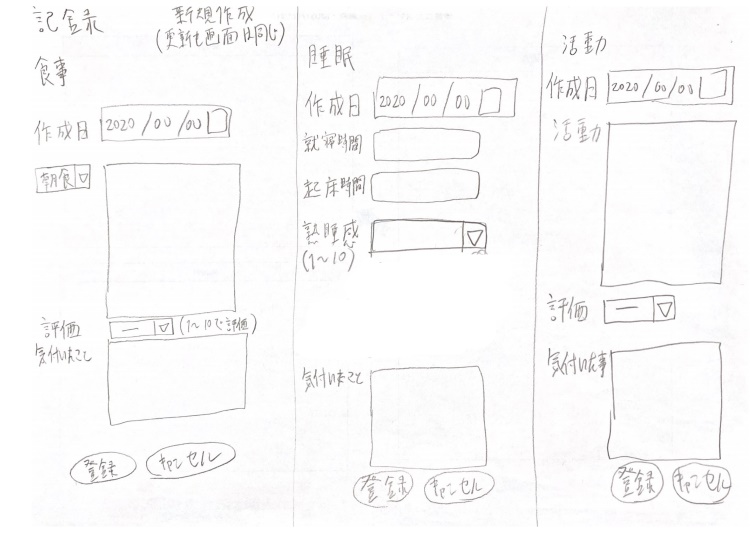 記録
新規作成
(更新も画面は同じ)
食事
作成日 2020/00/00
朝食 ▽
評価 ー ▽ (1〜10で評価)
気付いたこと
登録 キャンセル
睡眠
作成日 2020/00/00
就寝時間
起床時間
熟睡感 ▽
(1〜10)
気付いたこと
登録 キャンセル
活動
作成日 2020/00/00
活動
評価 ー ▽
気付いた事
登録 キャンセル